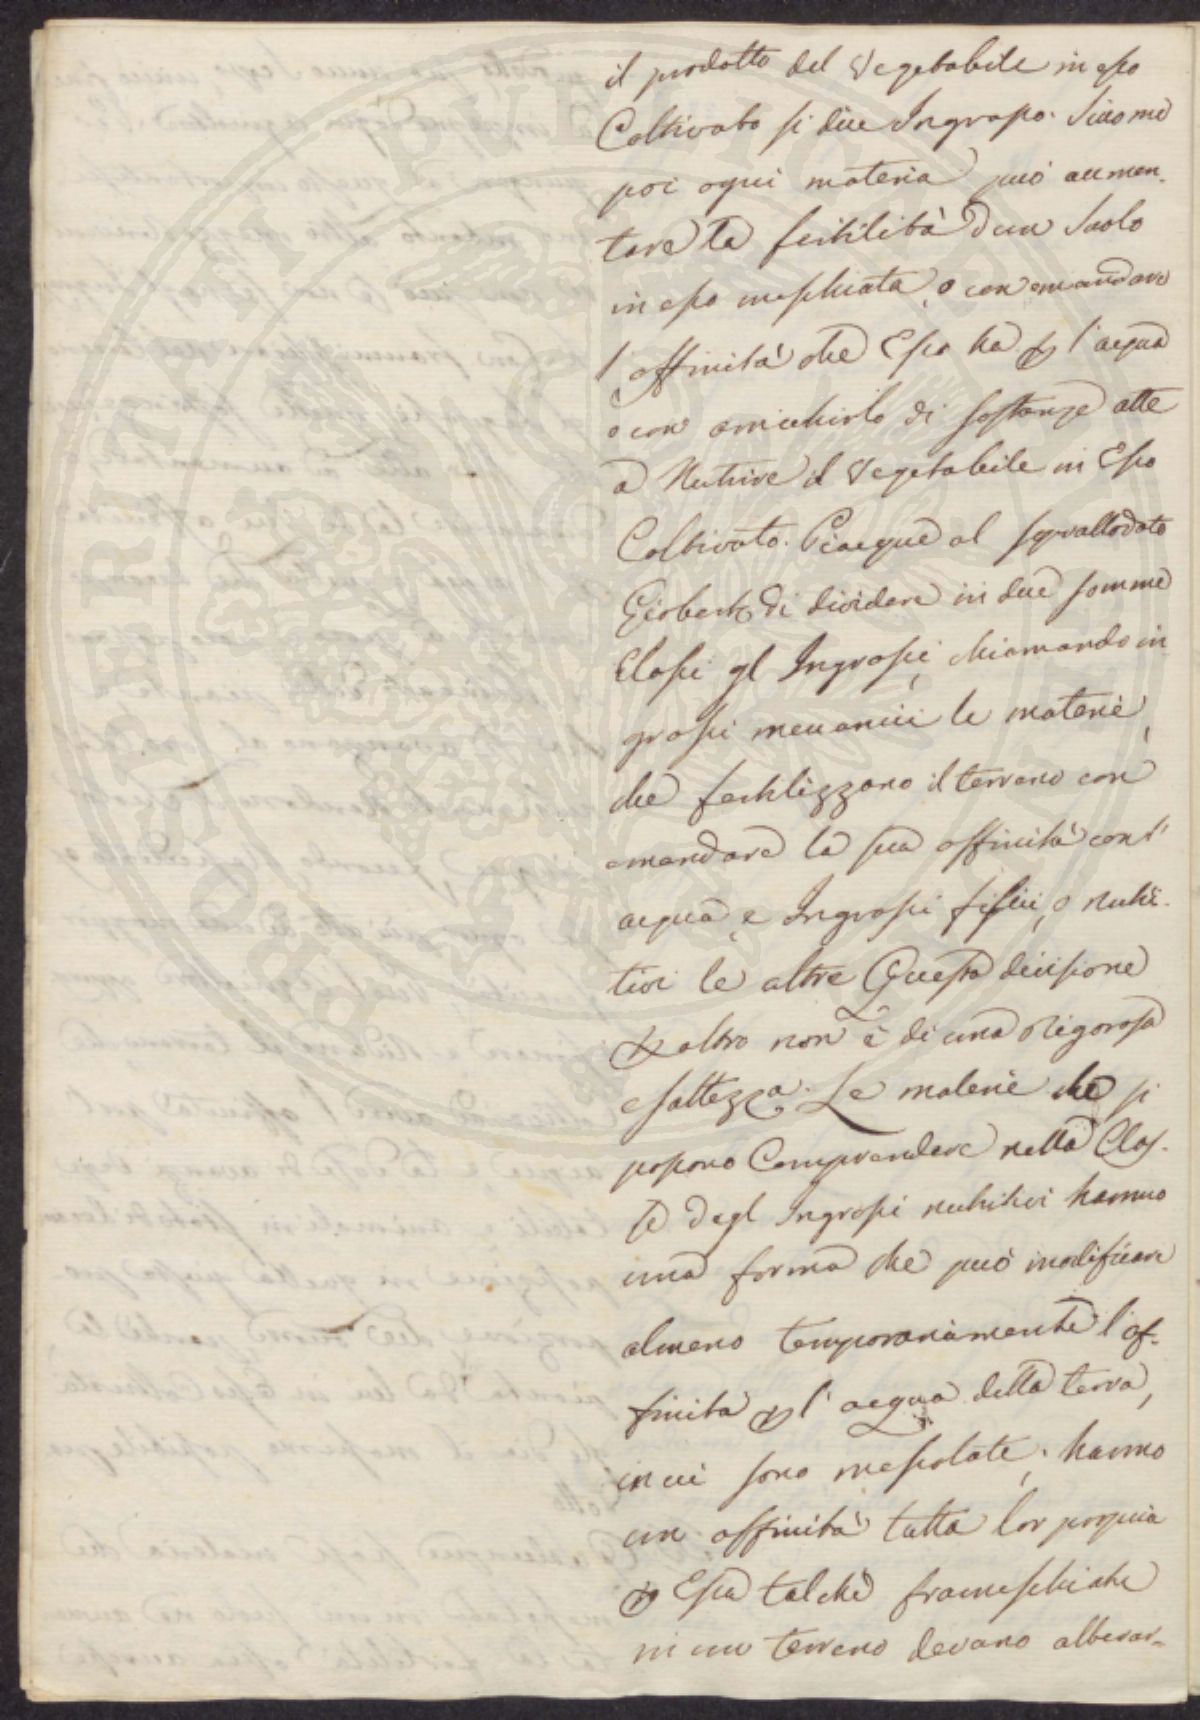 il prodotto del Vegetabile in esso
Coltivato si dice Ingrasso. Siccome
poi ogni materia può aumen-
tare la fertilità d'un Suolo
in esso meschiata, o con emandare
l'affinità che Essa ha per l'acqua
o con arricchirlo di sostanze atte
a Nutrire il Vegetabile in Esso
Coltivato. Piacque al sovrallodato
Giobert di dividere in due somme
Classi gl Ingrassi, chiamando in
grassi meccanici le materie,
che fertilizzano il terreno con
emandare la sua affinità con l'
acqua, e Ingrassi fisici, o nutri-
tivi le altre Questa divisione
per altro non è di una rigorosa
esattezza. Le materie che si
possono Comprendere nella Clas-
se degl Ingrassi nutritivi hanno
una forma che può modificare
almeno temporariamente l'af-
finità per l'acqua della terra,
in cui sono mescolate; hanno
un affinità tutta lor propria
per Essa talchè frameschiate
in un terreno devano alberar-
PROSPERITATI PUBLICAE AUGENDAE